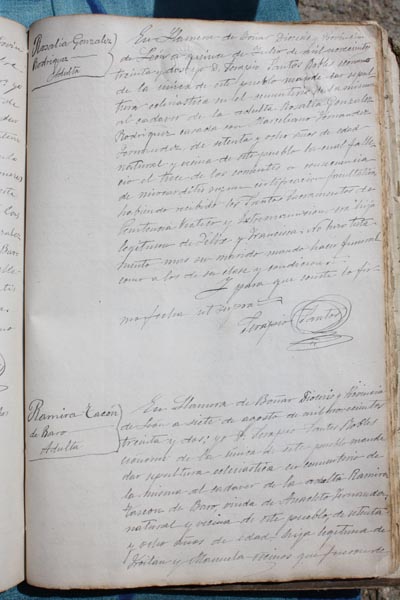 Rosalía González
Rodríguez
Adulta
En Llamera de Boñar Diócesis y Provincia
de León a quince de de mil novecientos
treinta y dos; yo D. Serapio Santos Robles ecónomo
de la única de este pueblo mandé dar sepul
tura eclesiástica en el cementerio de la misma
al cadáver de la adulta Rosalía González
Rodríguez casada con Marceliano Fernández
Fernández de setenta y ocho años de edad
natural y vecina de este pueblo la cual falle
ció el trece de los corrientes a consecuencia
de miocarditis según certificación facultativa
habiendo recibido los Santos Sacramentos de
Penitencia Viático y Extremaunción era hija
legítima de Félix y Francisca. No hizo testa
mento mas su marido mandó hacer funeral
como a los de su clase y condición.
Y para que conste lo fir
mo fecha ut supra
Serapio Santos
Ramira Tascón
de Baro
Adulta
En Llamera de Boñar Diócesis y Provincia
de León a siete de agosto de mil novecientos
treinta y dos: yo D. Serapio Santos Robles
ecónomo de la única de este pueblo mandé
dar sepultura eclesiástica en cementerio de
la misma al cadáver de la adulta Ramira
Tascón de Baro, viuda de Anacleto Fernández,
natural y vecina de este pueblo, de setenta
y ocho años de edad: hija legítima de
y Manuela vecinos que fueron de